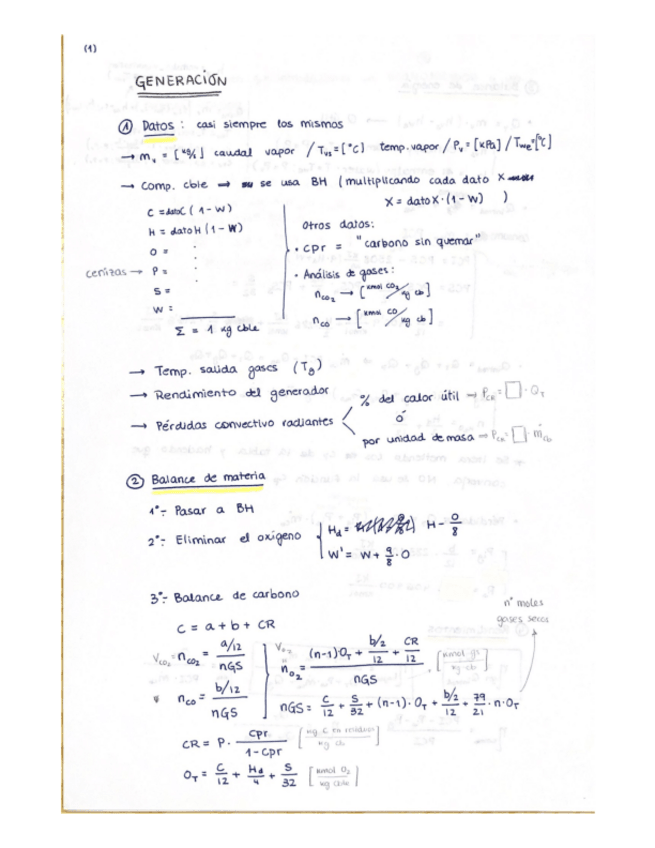 (1)
GENERACIÓN
① Datos : casi siempre los mismos
→ mᵥ = [kg/s] caudal vapor / Tvs = [°C] temp. vapor / Pv = [kPa] / Twe = [°C]
→ Comp. cble → se usa BH (multiplicando cada dato x
X = dato X · (1 - W) )
C = dato C (1 - W)
H = dato H (1 - W)
O = .
cenizas → P = .
S = .
W =
Σ = 1 kg cble
Otros datos:
• cpr = "carbono sin quemar"
• Análisis de gases:
nco₂ → [kmol CO₂/kg cb]
nco → [kmol CO/kg cb]
→ Temp. salida gases (Tg)
→ Rendimiento del generador
→ Pérdidas convectivo radiantes
% del calor útil → PCR = □ · QT
ó
por unidad de masa → PCR = □ · ṁcb
② Balance de materia
1º- Pasar a BH
2º- Eliminar el oxígeno
Hd = H - O/8
W' = W + 9/8 · O
3º- Balance de carbono
C = a + b + CR
Vco₂ = nco₂ = (a/12)/nGS
nco = (b/12)/nGS
nº moles
gases secos
nO₂ = ((n-1)·OT + (b/2)/12 + CR/12)/nGS
nGS = C/12 + S/32 + (n-1)·OT + (b/2)/12 + 79/21 · n·OT
CR = P · cpr/(1-cpr)
OT = C/12 + Hd/4 + S/32 [kmol O₂/kg cble]